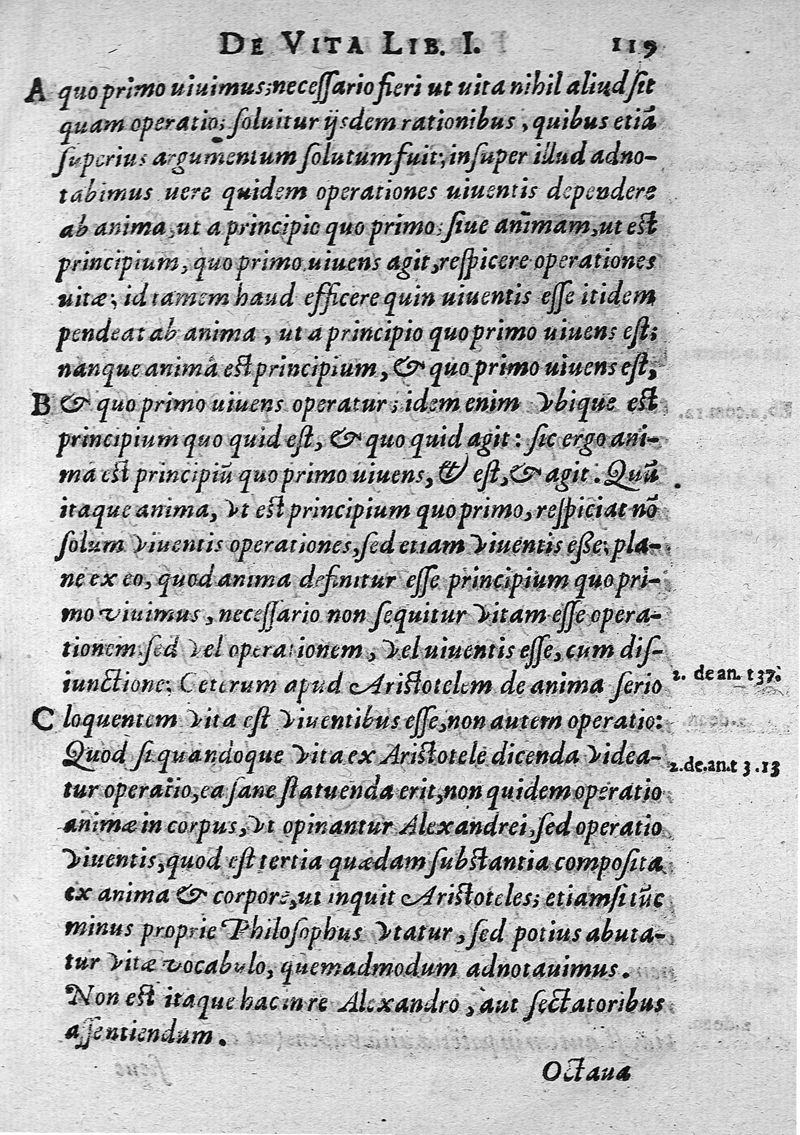 DE VITA LIB. I. 119
A quo primo uiuimus; necessario fieri ut uita nihil aliud sit
quam operatio; soluitur ijsdem rationibus, quibus etiã
superius argumentum solutum fuit; insuper illud adno-
tabimus uere quidem operationes uiuentis dependere
ab anima, ut a principio quo primo; siue animam, ut est
principium, quo primo uiuens agit, respicere operationes
uitæ; id tamem haud efficere quin uiuentis esse itidem
pendeat ab anima, ut a principio quo primo uiuens est;
nanque anima est principium, & quo primo uiuens est,
B & quo primo uiuens operatur; idem enim vbique est
principium quo quid est, & quo quid agit: sic ergo ani-
ma est principiũ quo primo uiuens, & est, & agit. Quũ
itaque anima, vt est principium quo primo, respiciat nõ
solum viuentis operationes, sed etiam viuentis esse; pla-
ne ex eo, quod anima definitur esse principium quo pri-
mo viuimus, necessario non sequitur vitam esse opera-
tionem: sed vel operationem, vel uiuentis esse, cum dis-
iunctione: Ceterum apud Aristotelem de anima serio
2. de an. t 37.
C loquentem vita est viuentibus esse, non autem operatio:
Quod si quandoque vita ex Aristotele dicenda videa-
2. de. an. t 3. 13
tur operatio, ea sane statuenda erit, non quidem operatio
animæ in corpus, vt opinantur Alexandrei, sed operatio
viuentis, quod est tertia quædam substantia composita
ex anima & corpore, ut inquit Aristoteles; etiamsi tũc
minus proprie Philosophus vtatur, sed potius abuta-
tur vitæ vocabulo, quemadmodum adnotauimus.
Non est itaque hac in re Alexandro, aut sectatoribus
assentiendum.
Octaua